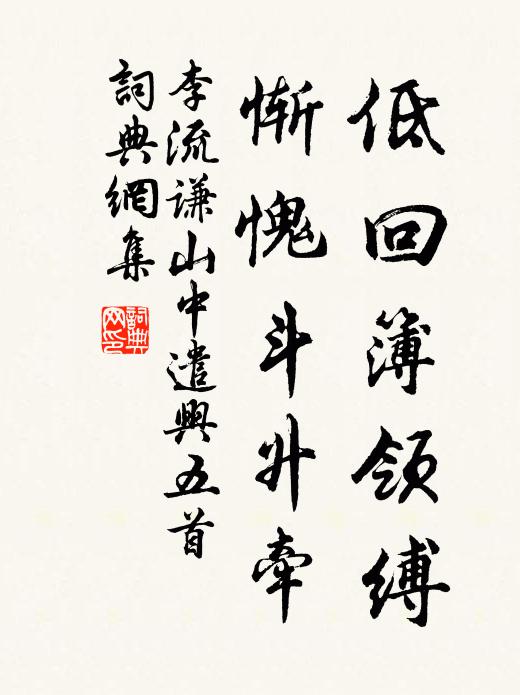 低回簿领缚
惭愧斗升牵
李流谦山中遣兴五首
詞典網集
詞典网印